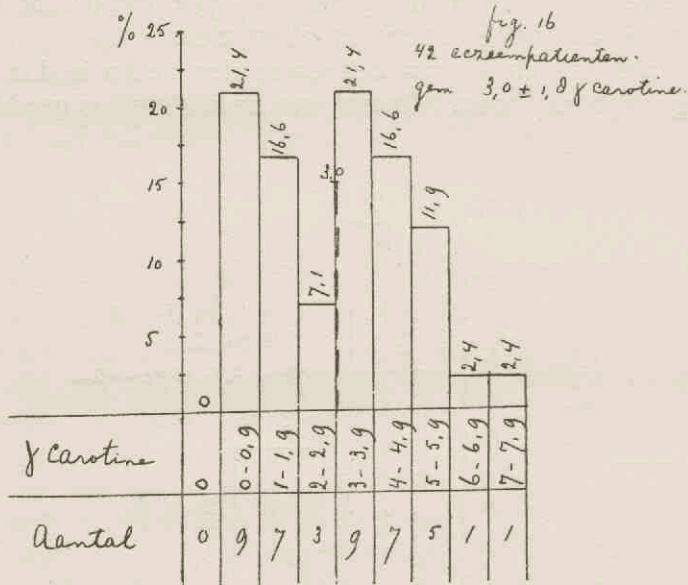 fig. 16
42 eczeempatienten.
gem 3,0 ± 1,8 γ carotine.
% 25
20
15
10
5
0
21,4
16,6
7,1
3,0
21,4
16,6
11,9
2,4
2,4
γ carotine 0 0-0,9 1-1,9 2-2,9 3-3,9 4-4,9 5-5,9 6-6,9 7-7,9
Aantal 0 9 7 3 9 7 5 1 1